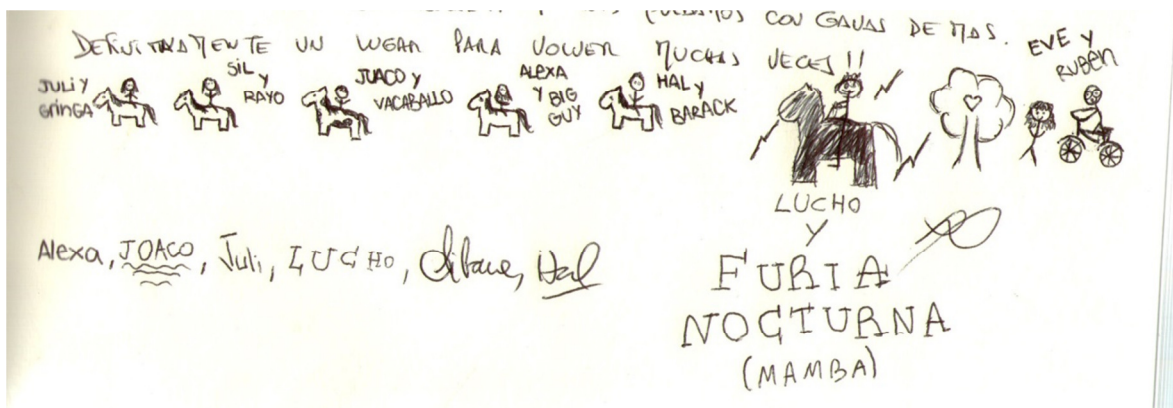 CON GANAS DE MAS.
DEFINITIVAMENTE UN LUGAR PARA VOLVER MUCHAS VECES!!
JULI Y GRINGA
SIL Y RAYO
JUACO Y VACABALLO
ALEXA Y BIG GUY
HAL Y BARACK
EVE Y RUBEN
LUCHO
Y
FURIA
NOCTURNA
(MAMBA)
Alexa, JOACO, Juli, LUCHO, Silvana, Hal